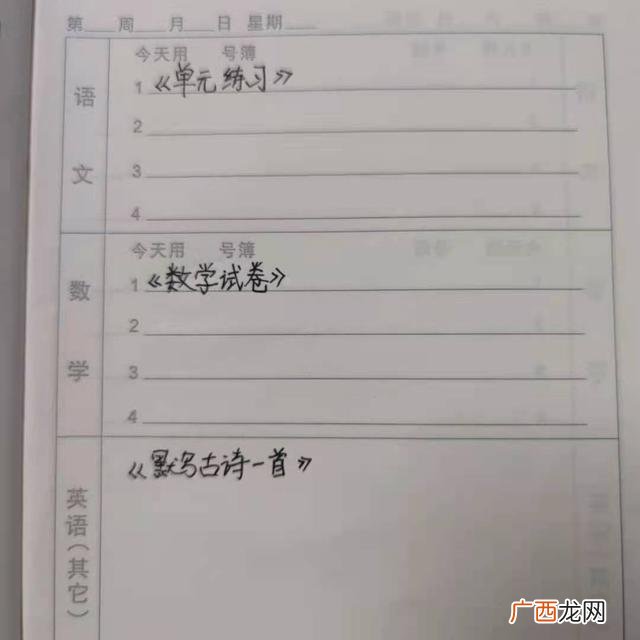 第 周 月 日 星期
语文
今天用 号簿
1 《单元练习》
2
3
4
数学
今天用 号簿
1 《数学试卷》
2
3
4
英语(其它)
《默写古诗一首》
广西龙网